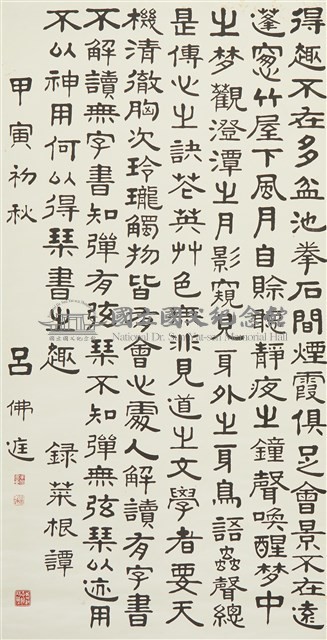 得趣不在多盆池拳石間煙霞俱足會景不在遠
蓬窻竹屋下風月自賒聽靜夜之鐘聲喚醒梦中
之梦觀澄潭之月影窺見身外之身鳥語蟲聲總
是傳心之訣花英艸色無非見道之文學者要天
機清徹胸次玲瓏觸物皆有會心處人解讀有字書
不解讀無字書知彈有弦琴不知彈無弦琴以迹用
不以神用何以得琴書之趣 錄菜根譚
甲寅初秋 呂佛庭
國立國父紀念館
National Dr. Sun Yat-sen Memorial Hall